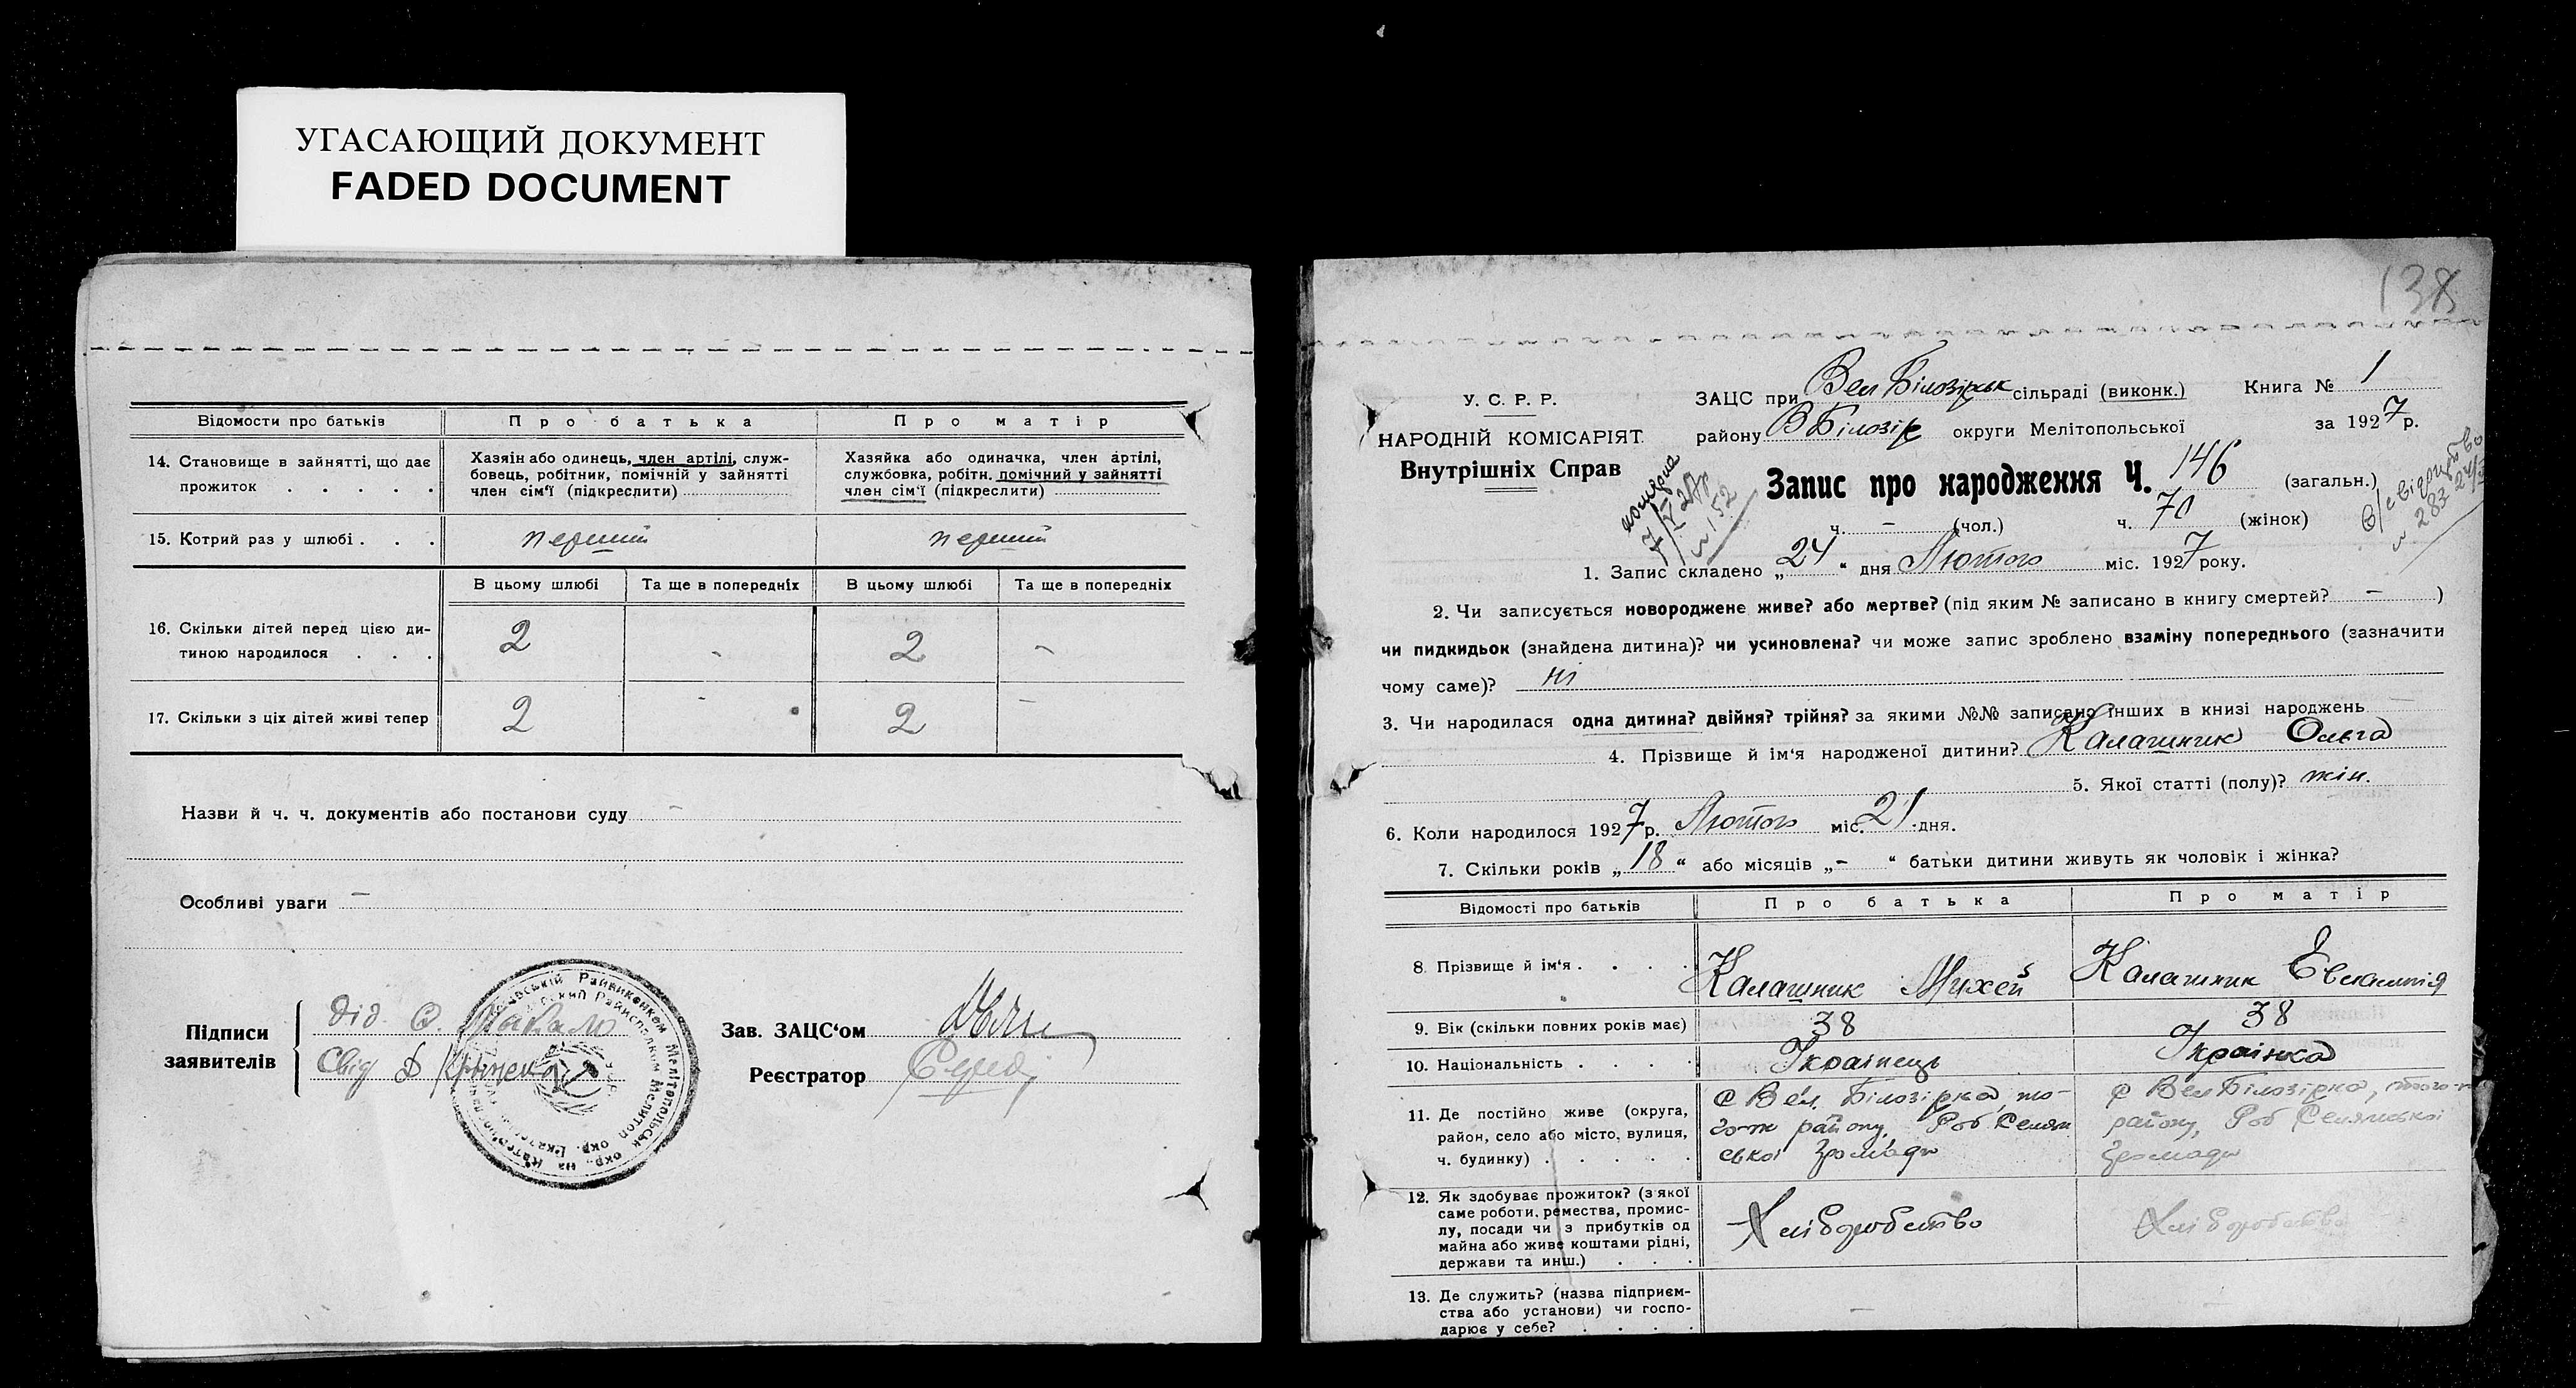 УГАСАЮЩИЙ ДОКУМЕНТ
FADED DOCUMENT
Відомости про батьків
Про батька
Про матір
14. Становище в зайнятті, що дає прожиток . . . . .
Хазяін або одинець, член артілі, служ-
бовець, робітник, помічній у зайнятті
член сім'ї (підкреслити)
Хазяйка або одиначка, член артілі,
службовка, робітн. помічний у зайнятті
член сім'ї (підкреслити)
15. Котрий раз у шлюбі . . .
перший
перший
В цьому шлюбі
Та ще в попередніх
В цьому шлюбі
Та ще в попередніх
16. Скільки дітей перед цією ди-
тиною народилося . . .
2 - 2 -
17. Скільки з ціх дітей живі тепер
2 - 2 -
Назви й ч. ч. документів або постанови суду -
Особливі уваги -
Підписи
заявителів
Дід
Свід
Зав. ЗАЦС'ом
Реєстратор
138
У. С. Р. Р.
НАРОДНІЙ КОМІСАРІЯТ
Внутрішніх Справ
ЗАЦС при Вел Білозірськ сільраді (виконк.)
Книга № 1
району ВБілозір округи Мелітопольської
за 1927 р.
Запис про народження Ч. 146 (загальн.)
ч. - (чол.) ч. 70 (жінок)
1. Запис складено „24“ дня Лютого міс. 1927 року.
2. Чи записується новороджене живе? або мертве? (під яким № записано в книгу смертей? - )
чи пидкидьок (знайдена дитина)? чи усиновлена? чи може запис зроблено взаміну попереднього (зазначити
чому саме)? ні
3. Чи народилася одна дитина? двійня? трійня? за якими №№ записано інших в книзі народжень -
4. Прізвище й ім'я народженої дитини? Калашник Ольга
5. Якої статті (полу)? жін.
6. Коли народилося 1927 р. Лютого міс. 21 дня.
7. Скільки років „18“ або місяців „-“ батьки дитини живуть як чоловік і жінка?
Відомості про батьків
Про батька
Про матір
8. Прізвище й ім'я . . . .
Калашник Михей
Калашник Евлампія
9. Вік (скільки повних років має)
38
38
10. Національність . . . .
Українець
Українка
11. Де постійно живе (округа,
район, село або місто, вулиця,
ч. будинку) . . . . .
с Вел. Білозірка, то-
го-ж району, Роб Селян
ської Громади
с Вел Білозірка, того-ж
району, Роб Селянської
Громади
12. Як здобуває прожиток? (з якої
саме роботи, ремества, промис-
лу, посади чи з прибутків од
майна або живе коштами рідні,
держави та инш.) . . .
Хліборобство
Хліборобство
13. Де служить? (назва підприєм-
ства або установи) чи госпо-
дарює у себе? . . . .
-